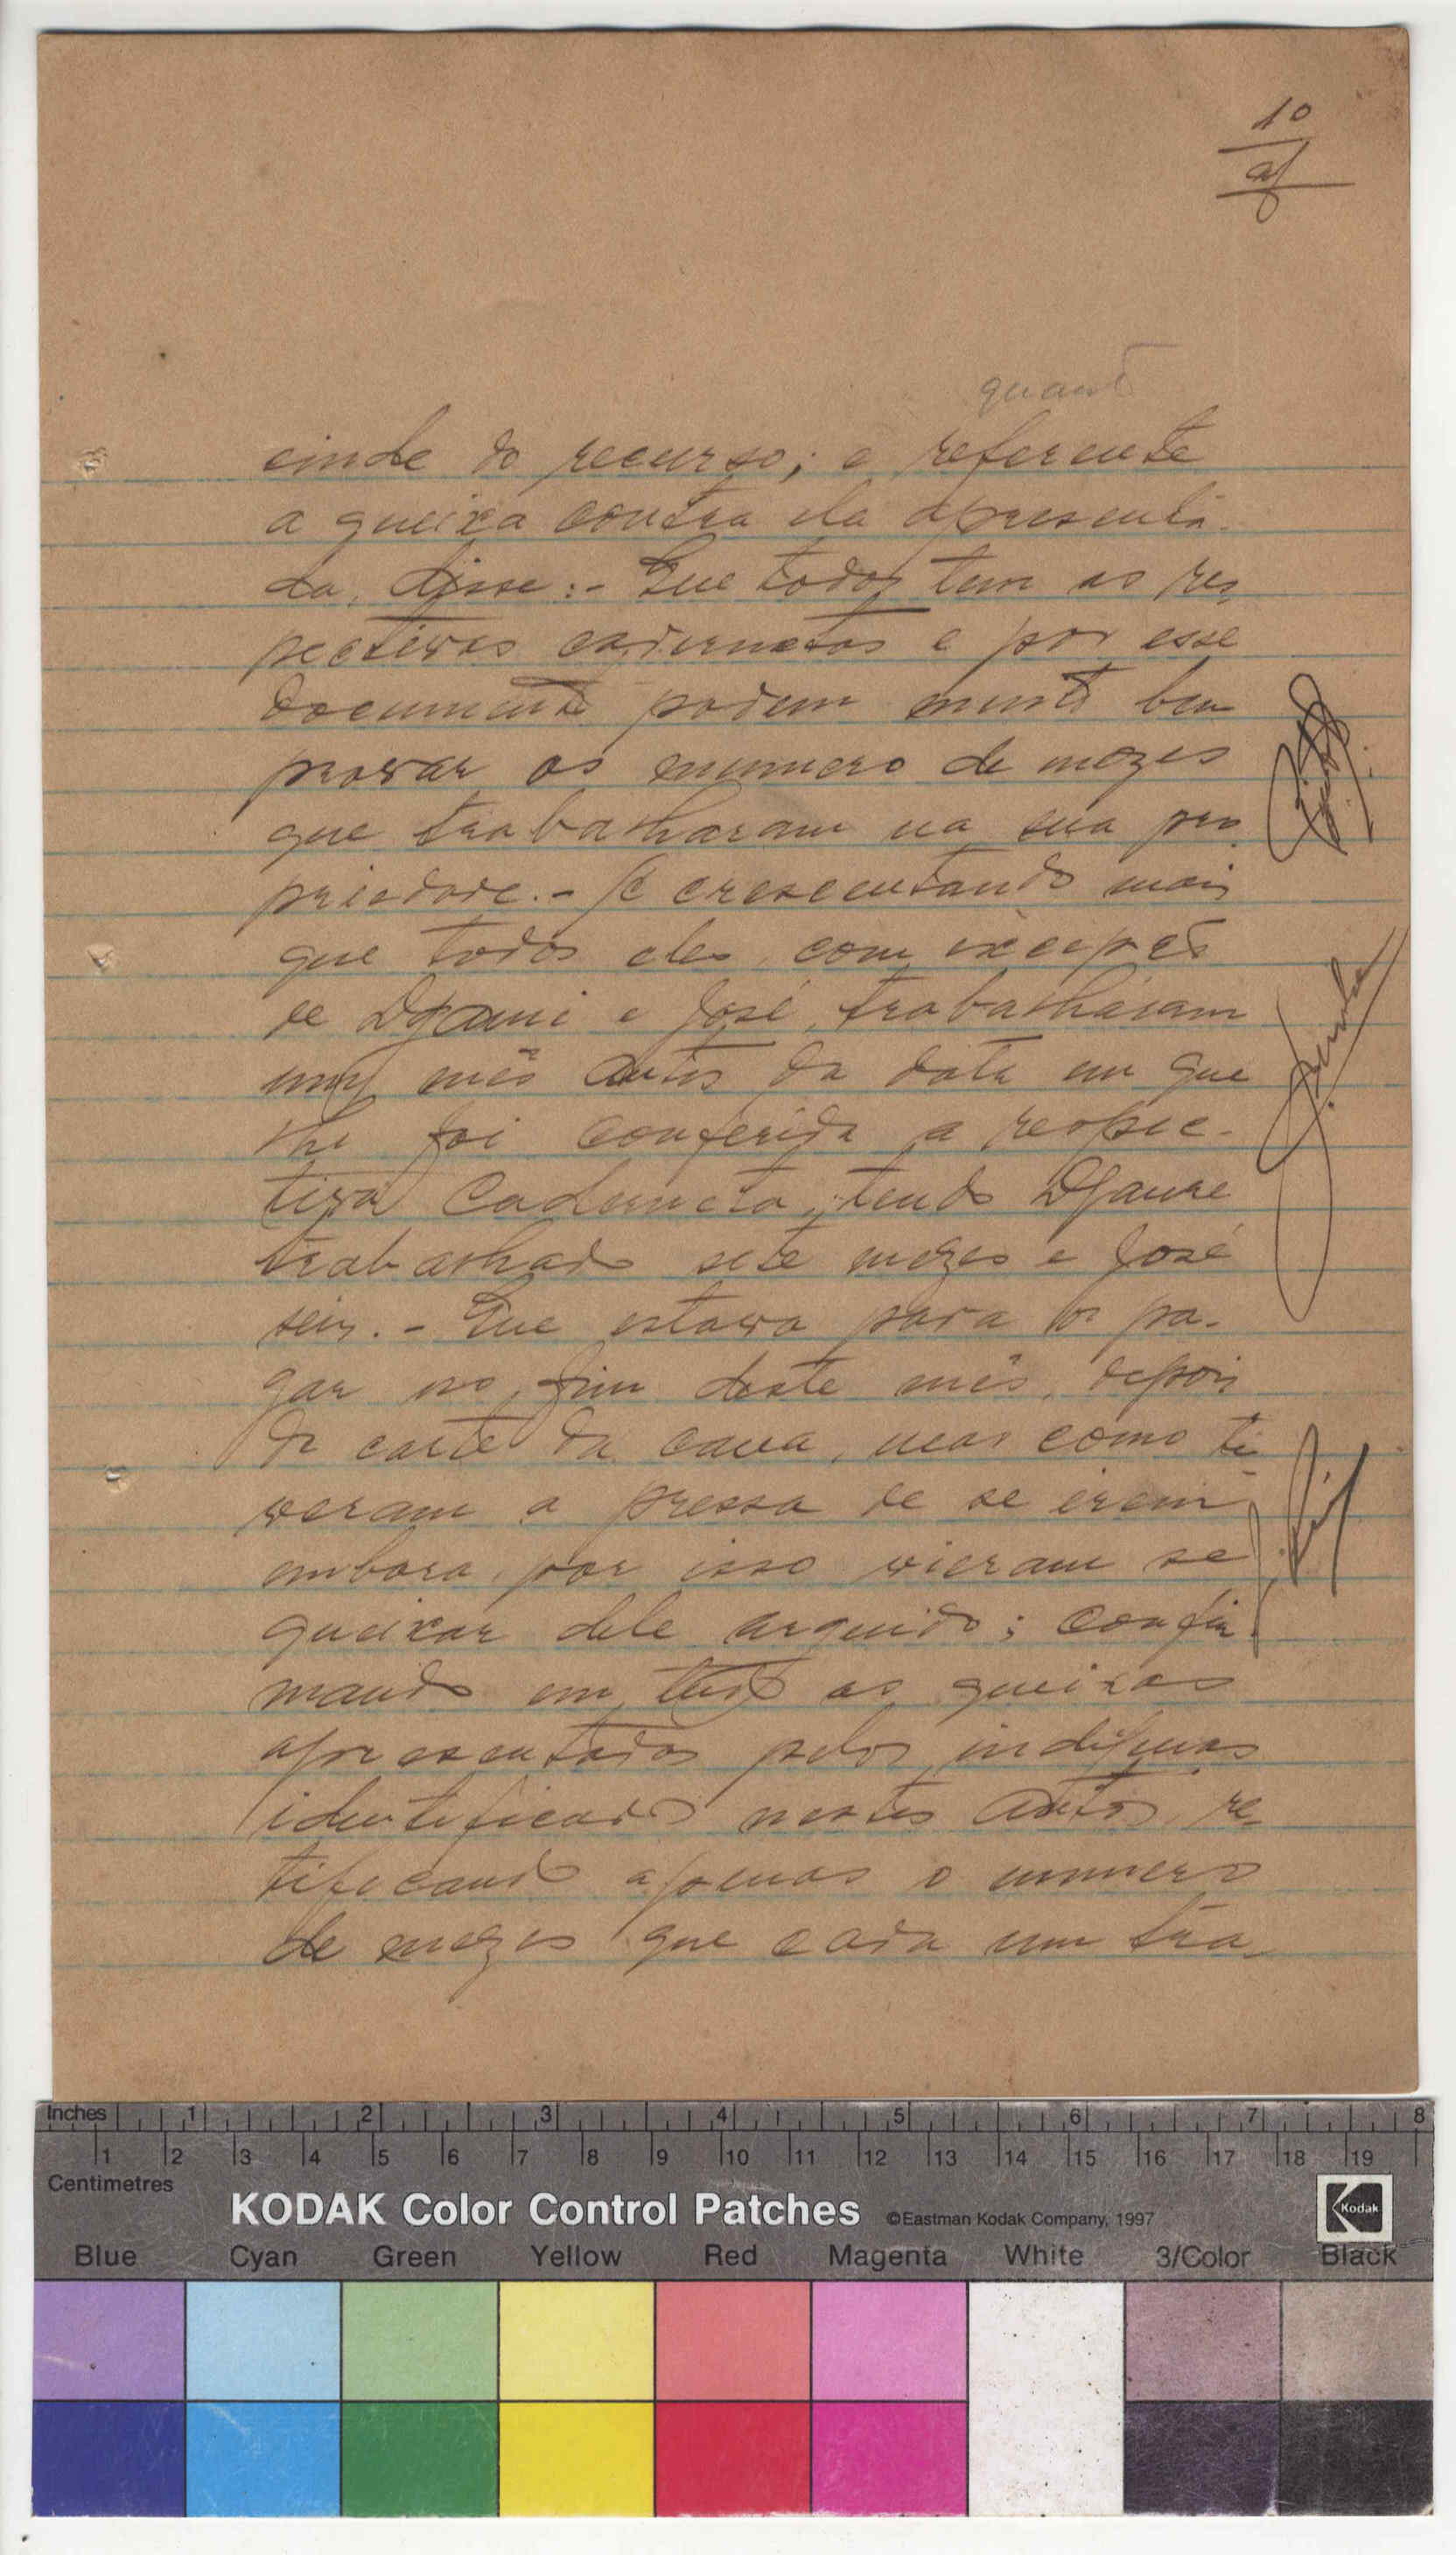 10
quanto
cinde do recurso; e referente
a queixa contra ela apresenta-
da, disse:- Que todos tem as res
pectivas cadernetas e por esse
documento podem muito bem
provar os nummero de mezes
que trabalharam na sua pro
priedade.- Acrescentando mais
que todos eles, com excepção
de e José, trabalháram
um mês antes da data em que
lhe foi conferida a respec-
tiva Caderneta, tendo
trabalhado sete mezes e José
seis.- Que estava para os pa-
gar no fim deste mês, depois
do corte da cana, mas como ti
veram a pressa de se irem
embora, por isso vieram se
queixar dele arguido; confir-
mando em tudo as queixas
apresentadas pelos indigenas
identificados nestes autos, re-
tificando apenas o nummero
de mezes que cada um tra-
Inches 1 2 3 4 5 6 7 8
1 2 3 4 5 6 7 8 9 10 11 12 13 14 15 16 17 18 19
Centimetres
KODAK Color Control Patches ©Eastman Kodak Company, 1997 Kodak
Blue Cyan Green Yellow Red Magenta White 3/Color Black